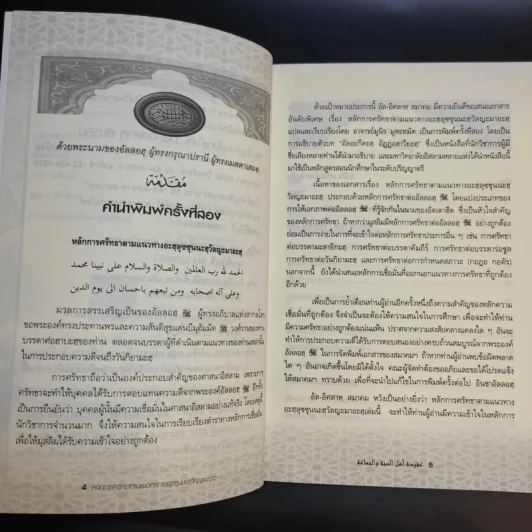 ด้วยพระนามของอัลลอฮฺ ผู้ทรงกรุณาปรานี ผู้ทรงเมตตาเสมอ
مُقَدِّمَة
คำนำพิมพ์ครั้งที่สอง
หลักการศรัทธาตามแนวทางอะฮฺลุซซุนนะฮฺวัลญะมาอะฮฺ
الحمد لله رب العالمين والصلاة والسلام على نبينا محمد
وعلى آله أصحابه ومن تبعهم بإحسان الى يوم الدين
มวลการสรรเสริญเป็นของอัลลอฮฺ ﷻ ผู้ทรงอภิบาลแห่งสากลโลก
ขอพระองค์ทรงประทานพรและความสันติสุขแด่นบีมุฮัมมัด ﷺ วงศ์วานของท่าน
บรรดาศอฮาบะฮฺของท่าน ตลอดจนบรรดาผู้ที่ดำเนินตามแนวทางของท่านเหล่านั้น
ในการประกอบความดีจนถึงวันกิยามะฮฺ
การศรัทธาถือว่าเป็นองค์ประกอบสำคัญของศาสนาอิสลาม เพราะการ
ศรัทธาจะทำให้บุคคลได้รับการตอบแทนความดีจากพระองค์อัลลอฮฺ ﷻ อีกทั้ง
เป็นการยืนยันว่า บุคคลผู้นั้นมีความเชื่อมั่นในศาสนาอิสลามอย่างแท้จริง โดยเหตุนี้
นักวิชาการจำนวนมาก จึงให้ความสนใจในการเรียบเรียงตำราทางหลักการเชื่อมั่น
เพื่อให้มุสลิมได้รับความเข้าใจอย่างถูกต้อง
4 หลักการศรัทธาตามแนวทาง อะฮฺลุซซุนนะฮฺวัลญะมาอะฮฺ
ด้วยเป้าหมายประการนี้ อัล-อิศลาหฺ สมาคม มีความยินดีขอเสนอเอกสาร
อันดับพิเศษ เรื่อง หลักการศรัทธาตามแนวทางอะฮฺลุซซุนนะฮฺวัลญะมาอะฮฺ
แปลและเรียบเรียงโดย อาจารย์มุนีร มูหะหมัด เป็นการพิมพ์ครั้งที่สอง โดยเป็น
การอธิบายตำรา ซึ่งเป็นหนังสือที่นักวิชาการผู้มี
ชื่อเสียงหลายท่านได้นำมาอธิบาย และมหาวิทยาลัยอิสลามหลายแห่งได้นำหนังสือนี้
มาใช้เป็นหลักสูตรสอนนักศึกษาในระดับปริญญาตรี
เนื้อหาของเอกสารเรื่อง หลักการศรัทธาตามแนวทางอะฮฺลุซซุนนะฮฺ
วัลญะมาอะฮฺ จะกล่าวถึงหลักการศรัทธาต่ออัลลอฮฺ ﷻ โดยแบ่งประเภทของ
การให้เอกภาพต่ออัลลอฮฺ ﷻ ที่รู้จักกันในนามของอัตเตาฮีด ซึ่งเป็นหัวใจสำคัญ
ของหลักการศรัทธา ถ้าหากว่ามุสลิมมีหลักการศรัทธาต่ออัลลอฮฺ ﷻ อย่างถูกต้อง
ย่อมเป็นการง่ายในการทำความเข้าใจต่อหลักการศรัทธาประการอื่น ๆ เช่น การศรัทธา
ต่อบรรดามะลาอิกะฮฺ การศรัทธาต่อบรรดาคัมภีร์ การศรัทธาต่อบรรดาร่อซูล
การศรัทธาต่อวันกิยามะฮฺ และการศรัทธาต่อกฎสภาวะ (กอฎอ กอดัร)
นอกจากนี้ ยังได้นำเสนอหลักการเชื่อมั่นที่ออกนอกแนวทางการศรัทธาที่ถูกต้อง
อีกด้วย
เพื่อเป็นการย้ำเตือนท่านผู้อ่านอีกครั้งหนึ่งถึงความสำคัญของหลักความ
เชื่อมั่นที่ถูกต้อง จึงจำเป็นจะต้องให้ความสนใจในการศึกษา เพื่อจะทำให้ท่าน
มีความศรัทธาอย่างถูกต้องแน่นแฟ้น ปราศจากความสงสัยคลางแคลงใด ๆ อันจะ
ทำให้การประกอบความดีได้รับการตอบสนองอย่างครบถ้วนสมบูรณ์จากพระองค์
อัลลอฮฺ ﷻ ในการจัดพิมพ์เอกสารของสมาคมฯ ถ้าหากท่านผู้อ่านพบข้อผิดพลาด
ใด ๆ อันอาจเกิดขึ้นโดยมิได้ตั้งใจ คณะผู้จัดทำต้องขออภัยและขอได้โปรดแจ้ง
ให้สมาคมฯ ทราบด้วย เพื่อที่จะนำไปแก้ไขในการพิมพ์ครั้งต่อไป อินชาอัลลอฮฺ
อัล-อิศลาหฺ สมาคม หวังเป็นอย่างยิ่งว่า หลักการศรัทธาตามแนวทาง
อะฮฺลุซซุนนะฮฺวัลญะมาอะฮฺเล่มนี้ จะทำให้ท่านผู้อ่านมีความเข้าใจในหลักการ
عقيدة أهل السنة والجماعة 5